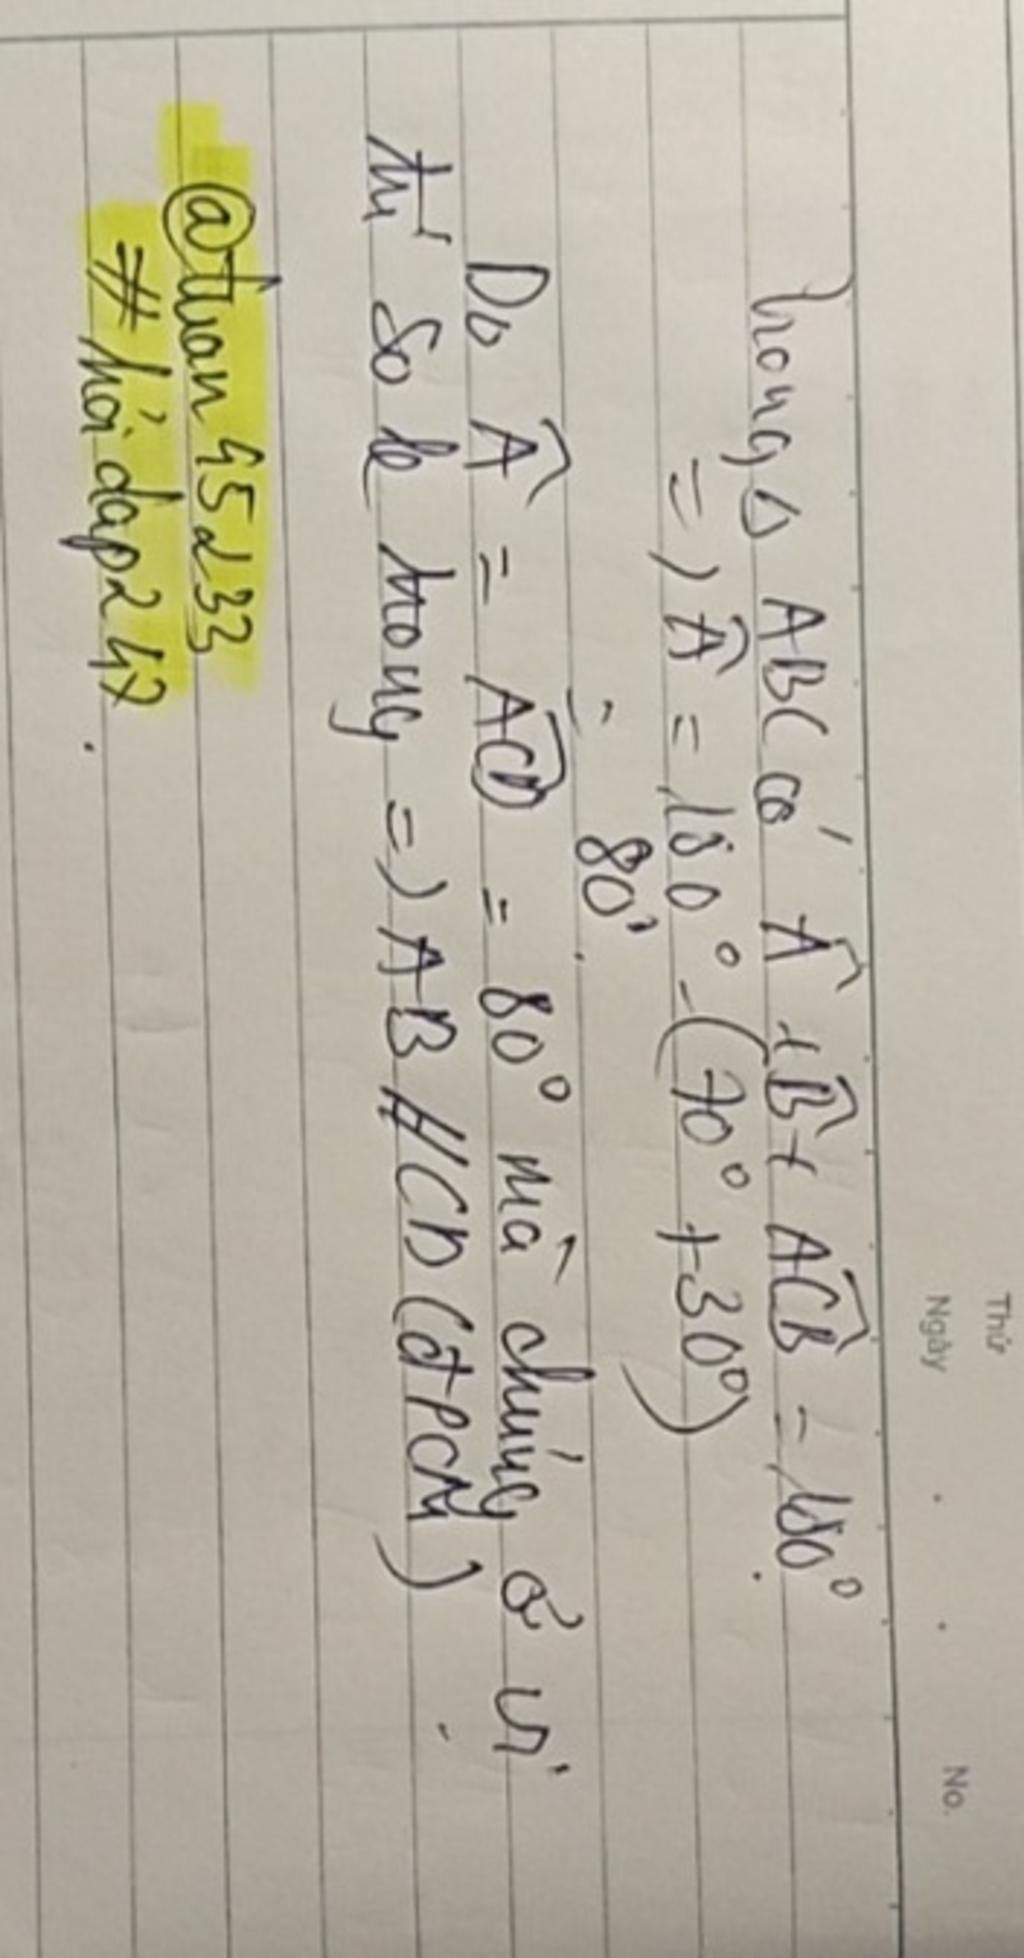 Thứ
Ngày
No.
Trong Δ ABC có Â + B̂ + ACB̂ = 180°
=) Â = 180° - (70° + 30°)
= 80°
Do Â = ACD̂ = 80° mà chúng ở vị
trí so le trong =) AB // CD (đpcm)
@tuan45233
#hỏidáp247